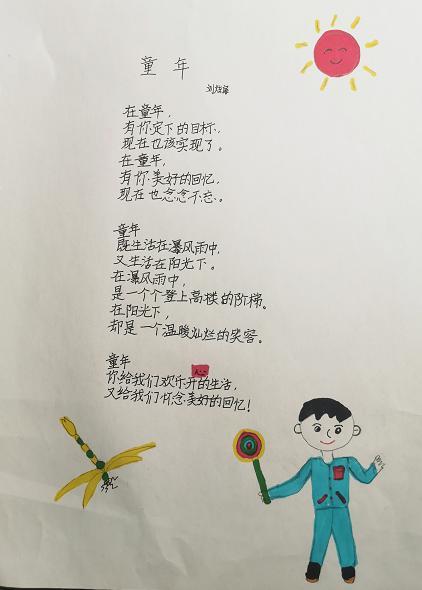 童年
在童年，
有你定下的目标，
现在也该实现了。
在童年，
有你美好的回忆，
现在也念念不忘。
童年
既生活在瀑风雨中，
又生活在阳光下。
在瀑风雨中，
是一个个登上高楼的阶梯。
在阳光下，
却是一个温暖灿烂的笑容。
童年
你给我们欢乐开心的生活，
又给我们怀念美好的回忆！